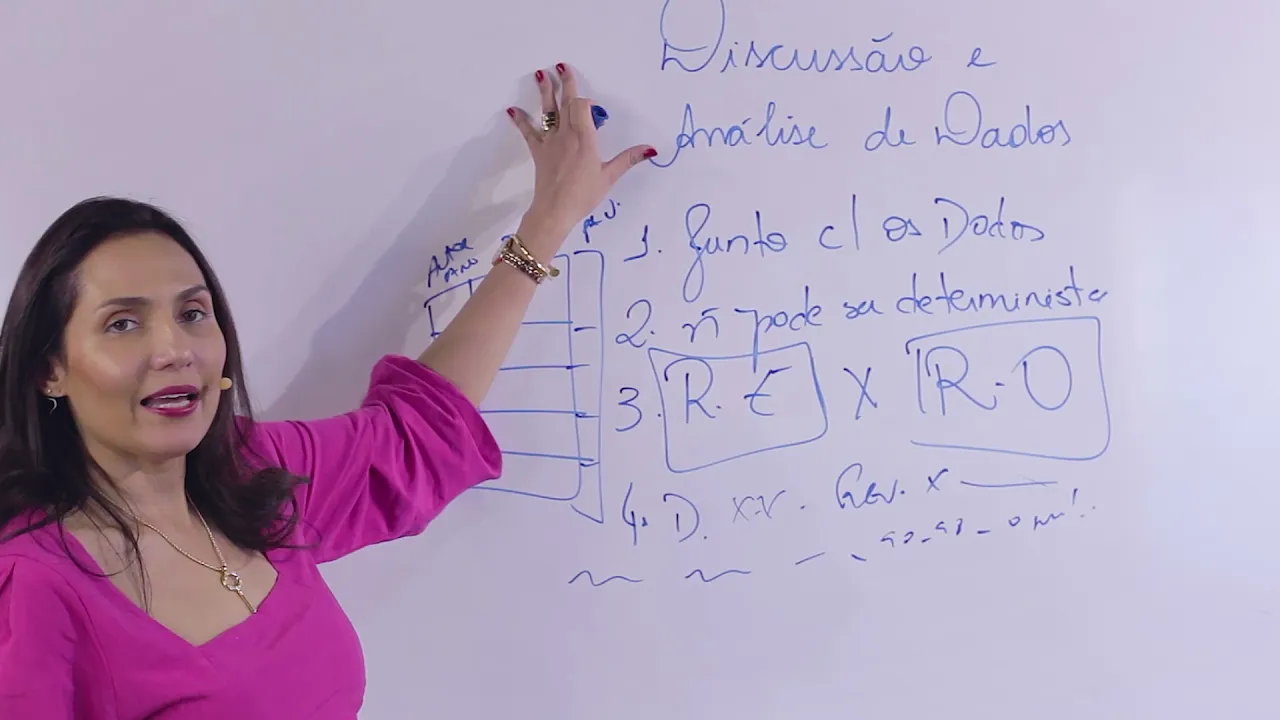 Discussão e
Análise de Dados
AUTOR
ANO
1. Junto c/ os Dados
2. ñ pode ser determinista
3. R.E X R.O
4. D. X.V. Rev. X